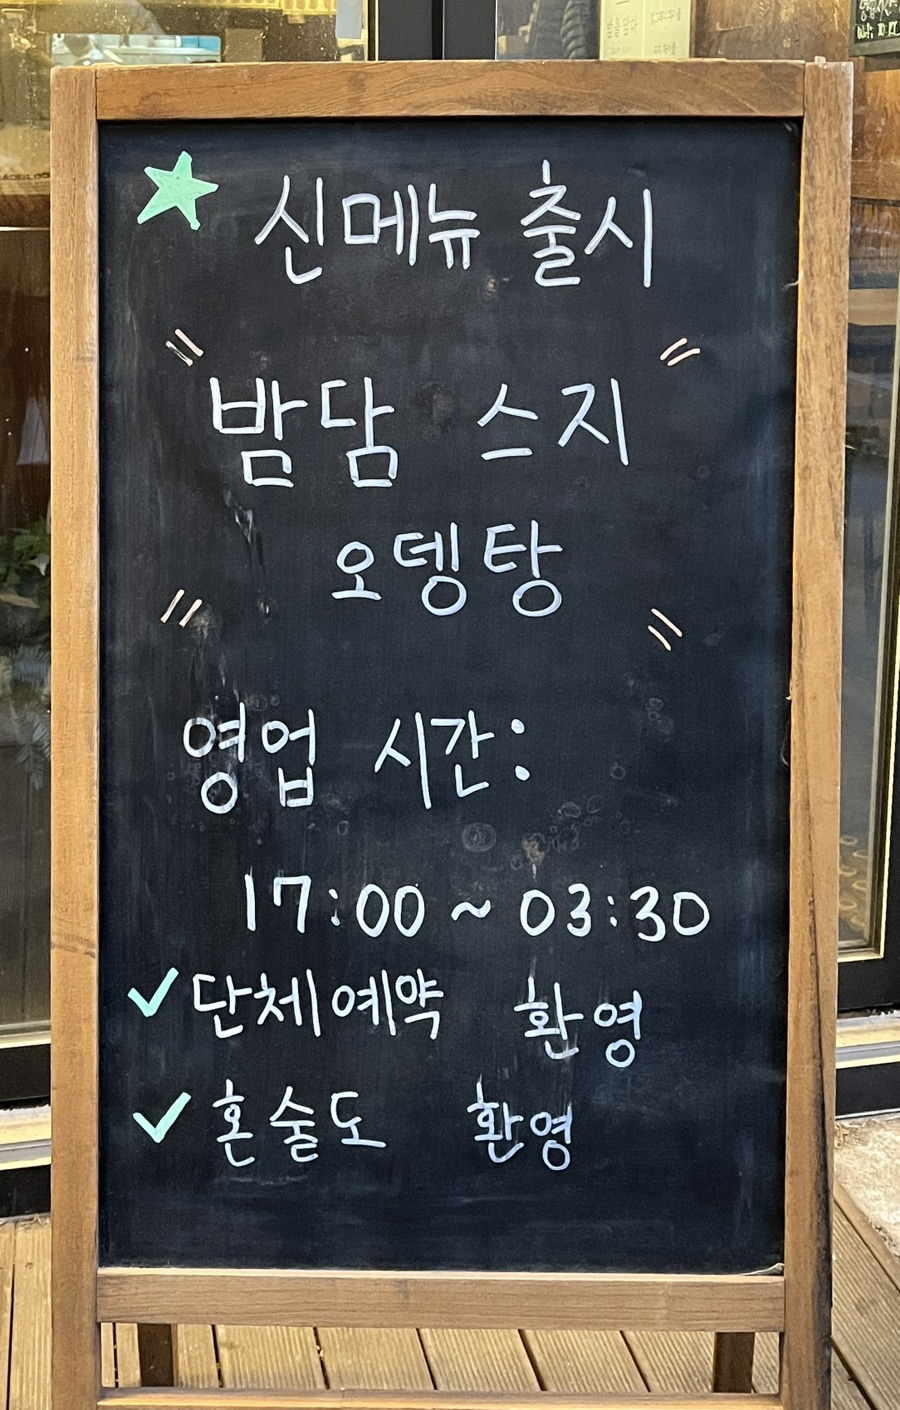 신메뉴 출시
밤담 스지
오뎅탕
영업 시간:
17:00 ~ 03:30
단체예약 환영
혼술도 환영